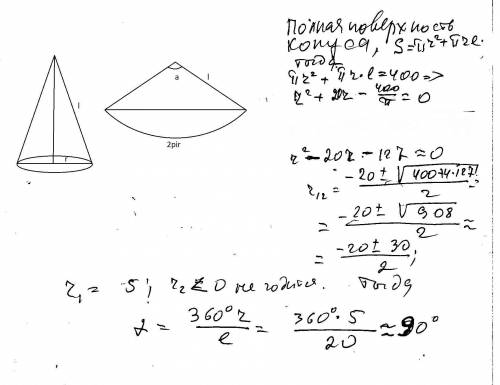 полная поверхность
конуса, S=πr²+πrl.
тогда
πr²+πr·l=400=>
r²+20r-400/π=0
r²-20r-127≈0
r₁₂=(-20±√(400+4·127))/2=
=(-20±√908)/2≈
=(-20±30)/2;
r₁=5; r₂<0 не годится. тогда
α=360°r/l=360°·5/20≈90°
l
r
a
l
2pir